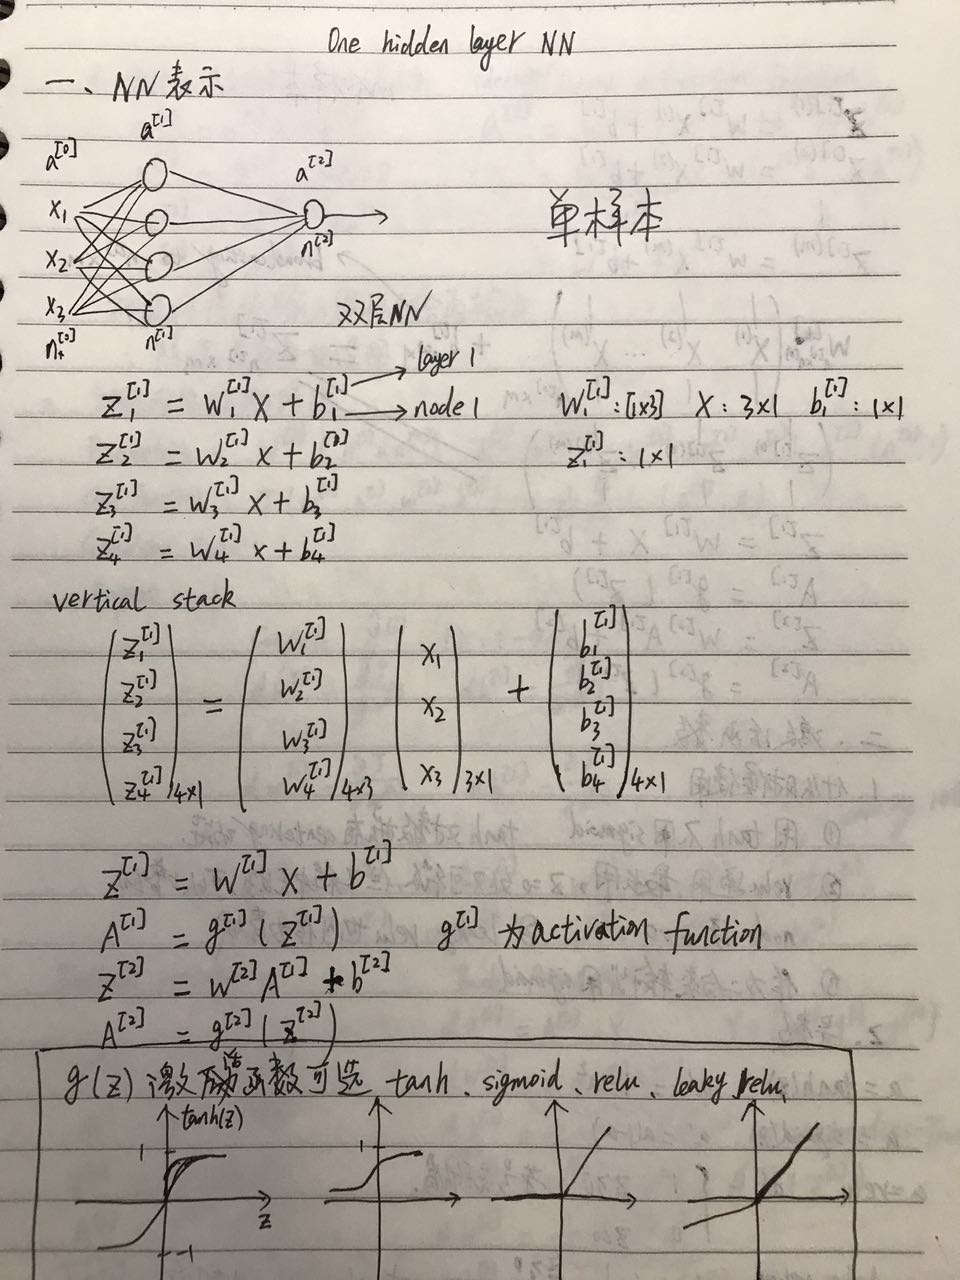 One hidden layer NN
一、NN表示
a^[0] a^[1] a^[2]
x₁
x₂
x₃
n^[1] n^[2]
单样本
双层NN
z₁^[1] = w₁^[1] x + b₁^[1] → layer 1 → node 1 w₁^[1] : [1×3] x : 3×1 b₁^[1] : 1×1
z₂^[1] = w₂^[1] x + b₂^[1] z₁^[1] : 1×1
z₃^[1] = w₃^[1] x + b₃^[1]
z₄^[1] = w₄^[1] x + b₄^[1]
vertical stack
(z₁^[1] z₂^[1] z₃^[1] z₄^[1])4×1 = (w₁^[1] w₂^[1] w₃^[1] w₄^[1])4×3 (x₁ x₂ x₃)3×1 + (b₁^[1] b₂^[1] b₃^[1] b₄^[1])4×1
z^[1] = w^[1] x + b^[1]
A^[1] = g^[1] (z^[1]) g^[1] 为 activation function
z^[2] = w^[2] A^[1] + b^[2]
A^[2] = g^[2] (z^[2])
g(z) 激活函数可选 tanh、sigmoid、relu、leaky relu
tanh(z)
1 1
z
-1